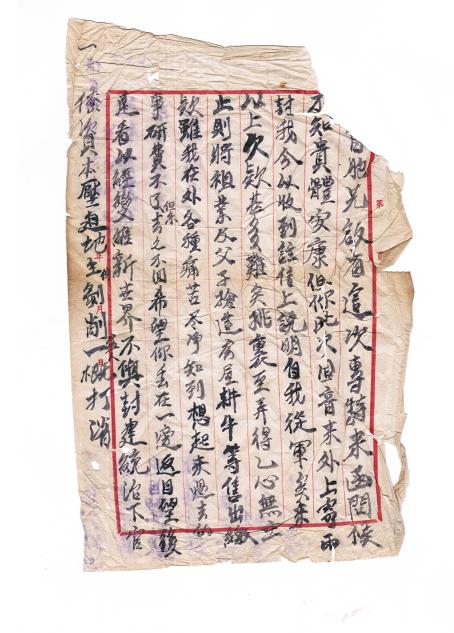 胞兄啟者這次專特來函問候
不知貴體安康但你此次回音來外上寄兩
封我今以收到該信上說明自我從軍矣來
以上欠款甚多難矣挑裏至弄得乙心無主
止則將祖業及父子搶造房屋耕牛等售出繳
款雖我在外各種痛苦尽淨知到想起來過去的
事研費不但去久不回希望你丟在一旁返目望後
是看以經變維新世界不與封建統治下官
僚資本壓迫地主剝削一概打消
第
年
月
日